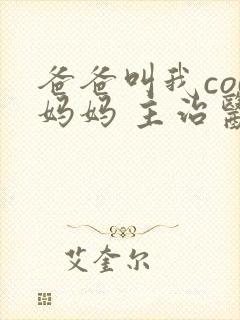 爸爸叫我co
妈妈 主治醫
艾奎尔